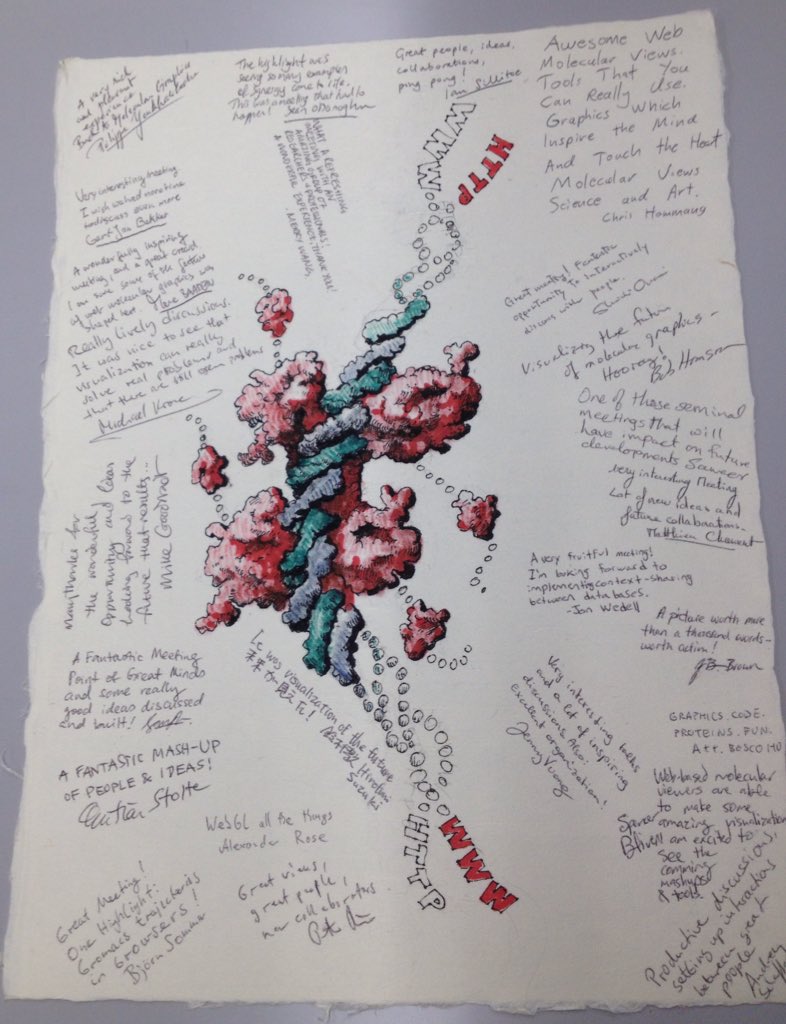 A very rich
and
Molecular Graphics
The highlight was
seeing so many examples
of synergy come to life.
This was a meeting that had to
happen! Sean O'Donoghue
Great people, ideas,
collaborations,
ping pong!
Ian Sillitoe
Awesome Web
Molecular Views.
Tools That You
Can Really Use.
Graphics Which
Inspire the Mind
And Touch the Heart
Molecular Views
Science and Art.
Chris Hammang
WWW
HTTP
WHAT A REFRESHING
MEETING WITH AN
AMAZING GROUP OF
RESEARCHERS & PROFESSIONALS;
A WONDERFUL EXPERIENCE, THANK YOU!
MERRY WANG
Very interesting meeting
I wish we had more time
to discuss even more
Gert-Jan Bekker
A wonderfully inspiring
meeting, and a great crowd.
I am sure some of the future
of web molecular graphics was
shaped here.
Really lively discussions.
It was nice to see that
visualization can really
solve real problems and
that there are still open problems
Michael Krone
Great meeting! Fantastic
opportunity to interactively
discuss with people.
Visualizing the future
of molecular graphics -
Hooray!
Bob Hanson
One of those seminal
meetings that will
have impact on future
developments Sameer
Very interesting Meeting
Lot of new ideas and
future collaborations.
Matthieu Chavent
Many thanks for
the wonderful
opportunity and ideas
Looking forward to the
future that results...
Mike Goodstadt
A very fruitful meeting!
I'm looking forward to
implementing context-sharing
between databases.
-Jon Wedell
A picture worth more
than a thousand words -
worth action!
J.B. Brown
A Fantastic Meeting
Point of Great Minds
and some really
good ideas discussed
and built!
It was visualization of the future
Hirofumi
Suzuki
Very interesting talks
and a lot of inspiring
discussions. Also:
Excellent organization!
Jenny Vuong
GRAPHICS. CODE.
PROTEINS. FUN.
Att. BOSCO HO
A FANTASTIC MASH-UP
OF PEOPLE & IDEAS!
Christian Stolte
WebGL all the things
Alexander Rose
Web-based molecular
viewers are able
to make some
amazing visualizations
Spencer
Bliven
I am excited to
see the
comming
mashups
& tools.
HTTP
WWW
Great Meeting!
One Highlight:
Gromacs trajectories
in browsers!
Björn Sommer
Great views,
great people,
new collaborators
Productive discussions,
setting up interactions
between great
people
Andrea